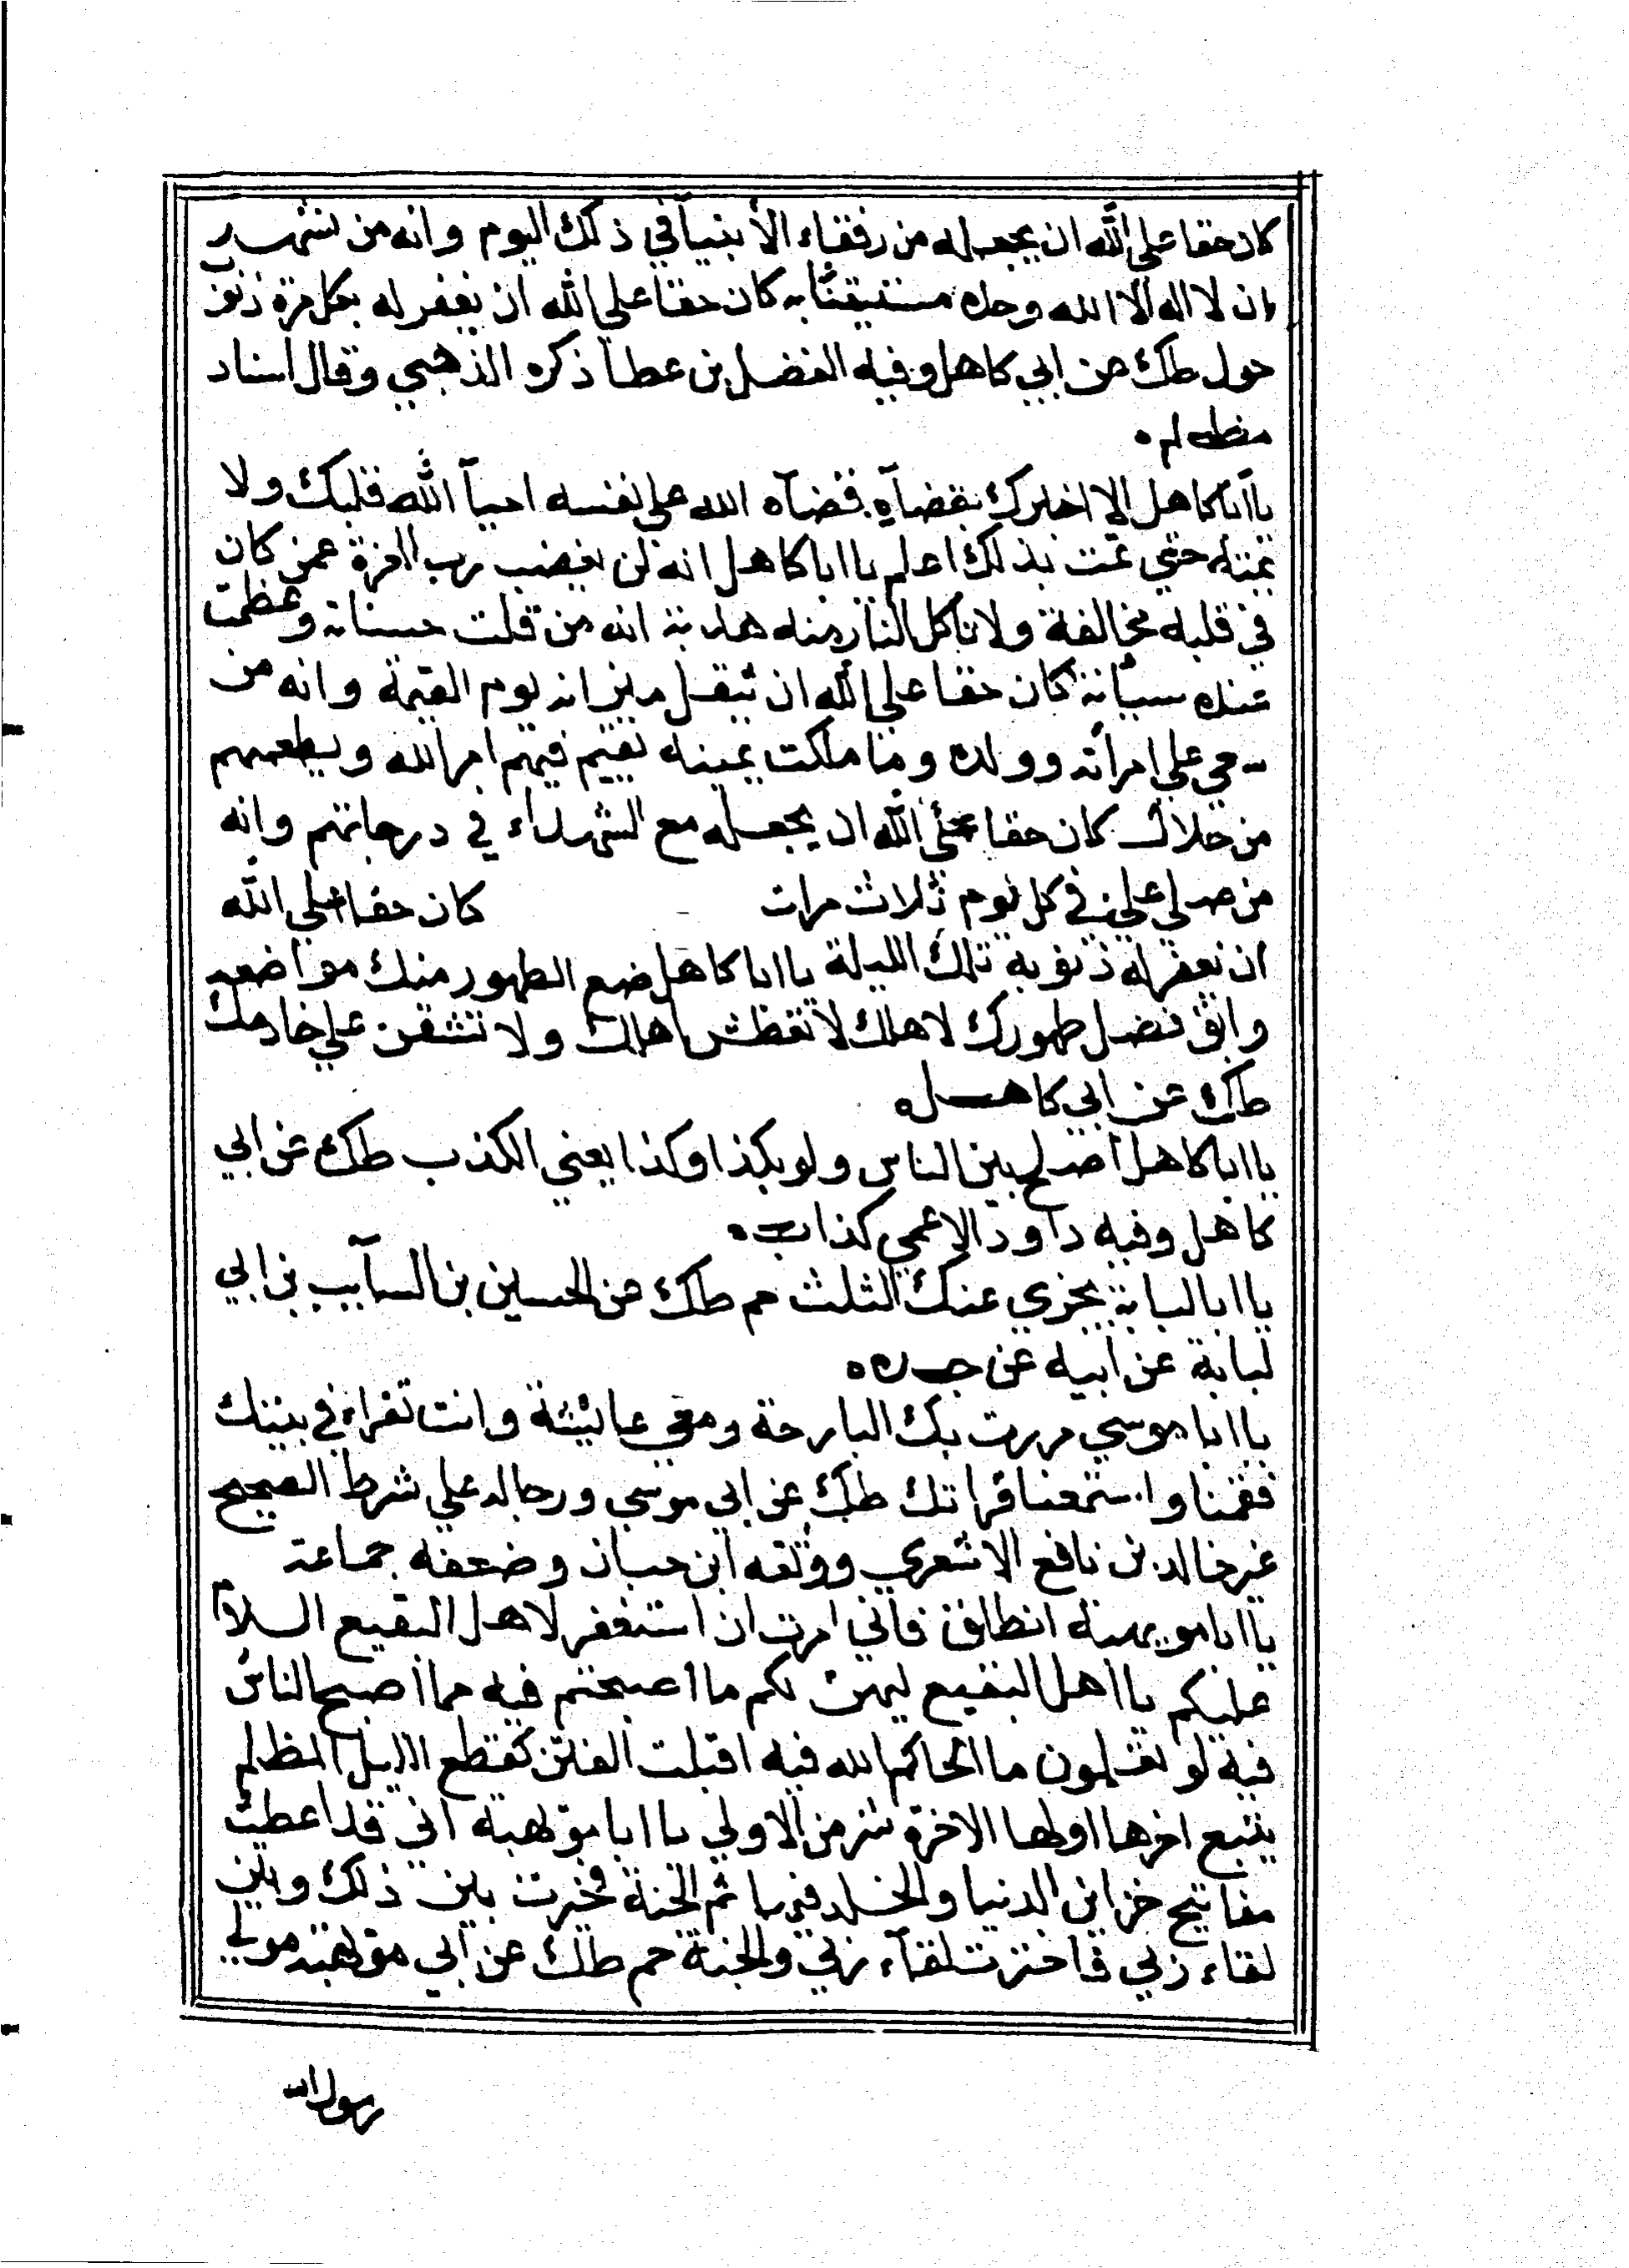 كان حقا على الله ان يجعله من رفقاء الأنبيآ في ذلك اليوم وانه من شهد
ان لا اله الا الله وحده مستيقنًا به كان حقا علي الله ان يغفر له بكل مرة ذنوب
حول طك عن ابي كاهل وفيه الفضل بن عطا ذكره الذهبي وقال اسناد
مظلم ه
يا ابا كاهل الا اخبرك بقضآء قضآه الله علي نفسه احيآ الله قلبك ولا
يمته حتي تمت بذلك اعلم يا ابا كاهل انه لن يغضب رب العزة عمن كان
في قلبه مخالفة ولا تاكل النار منه هدبة انه من قلت حسناته وعظمت
عنده سيأته كان حقا علي الله ان يثقل ميزانه يوم القيمة وانه من
سعي علي امرأته وولده وما ملكت يمينه يقيم فيهم امر الله ويطعمهم
من حلال كان حقا علي الله ان يجعله مع الشهداء في درجاتهم وانه
من صلي علي في كل يوم ثلاث مرات كان حقا علي الله
ان يغفر له ذنوبه تلك الليلة يا ابا كاهل ضع الطهور منك مواضعه
وابق فضل طهورك لاهلك لا تعطش اهلك ولا تشقن علي خادمك
طك عن ابي كاهل ه
يا ابا كاهل أصلح بين الناس ولو بكذا وكذا يعني الكذب طك عن ابي
كاهل وفيه داود الاعمي كذاب ه
يا ابا لبابة يجزي عنك الثلث حم طك عن الحسين بن السآيب بن ابي
لبابة عن ابيه عن جده ه
يا ابا موسي مررت بك البارحة ومعي عائشة وانت تقراء في بيتك
فقمنا واستمعنا قراتك طك عن ابي موسي ورجاله علي شرط الصحيح
غير خالد بن نافع الاشعري ووثقه ابن حبان وضعفه جماعة
يا ابا مويهبة انطلق فاني امرت ان استغفر لاهل البقيع السلام
عليكم يا اهل البقيع ليهن لكم ما أصبحتم فيه مما أصبح الناس
فيه لو تعلمون ما انجاكم الله فيه اقبلت الفتن كقطع الليل المظلم
يتبع اخرها اولها الاخرة شر من الاولي يا ابا مويهبة اني قد اعطيت
مفاتيح خزاين الدنيا والخلد فيها ثم الجنة فخيرت بين ذلك وبين
لقاء ربي فاخترت لقآء ربي والجنة حم طك عن ابي مويهبة مولي
رسول الله